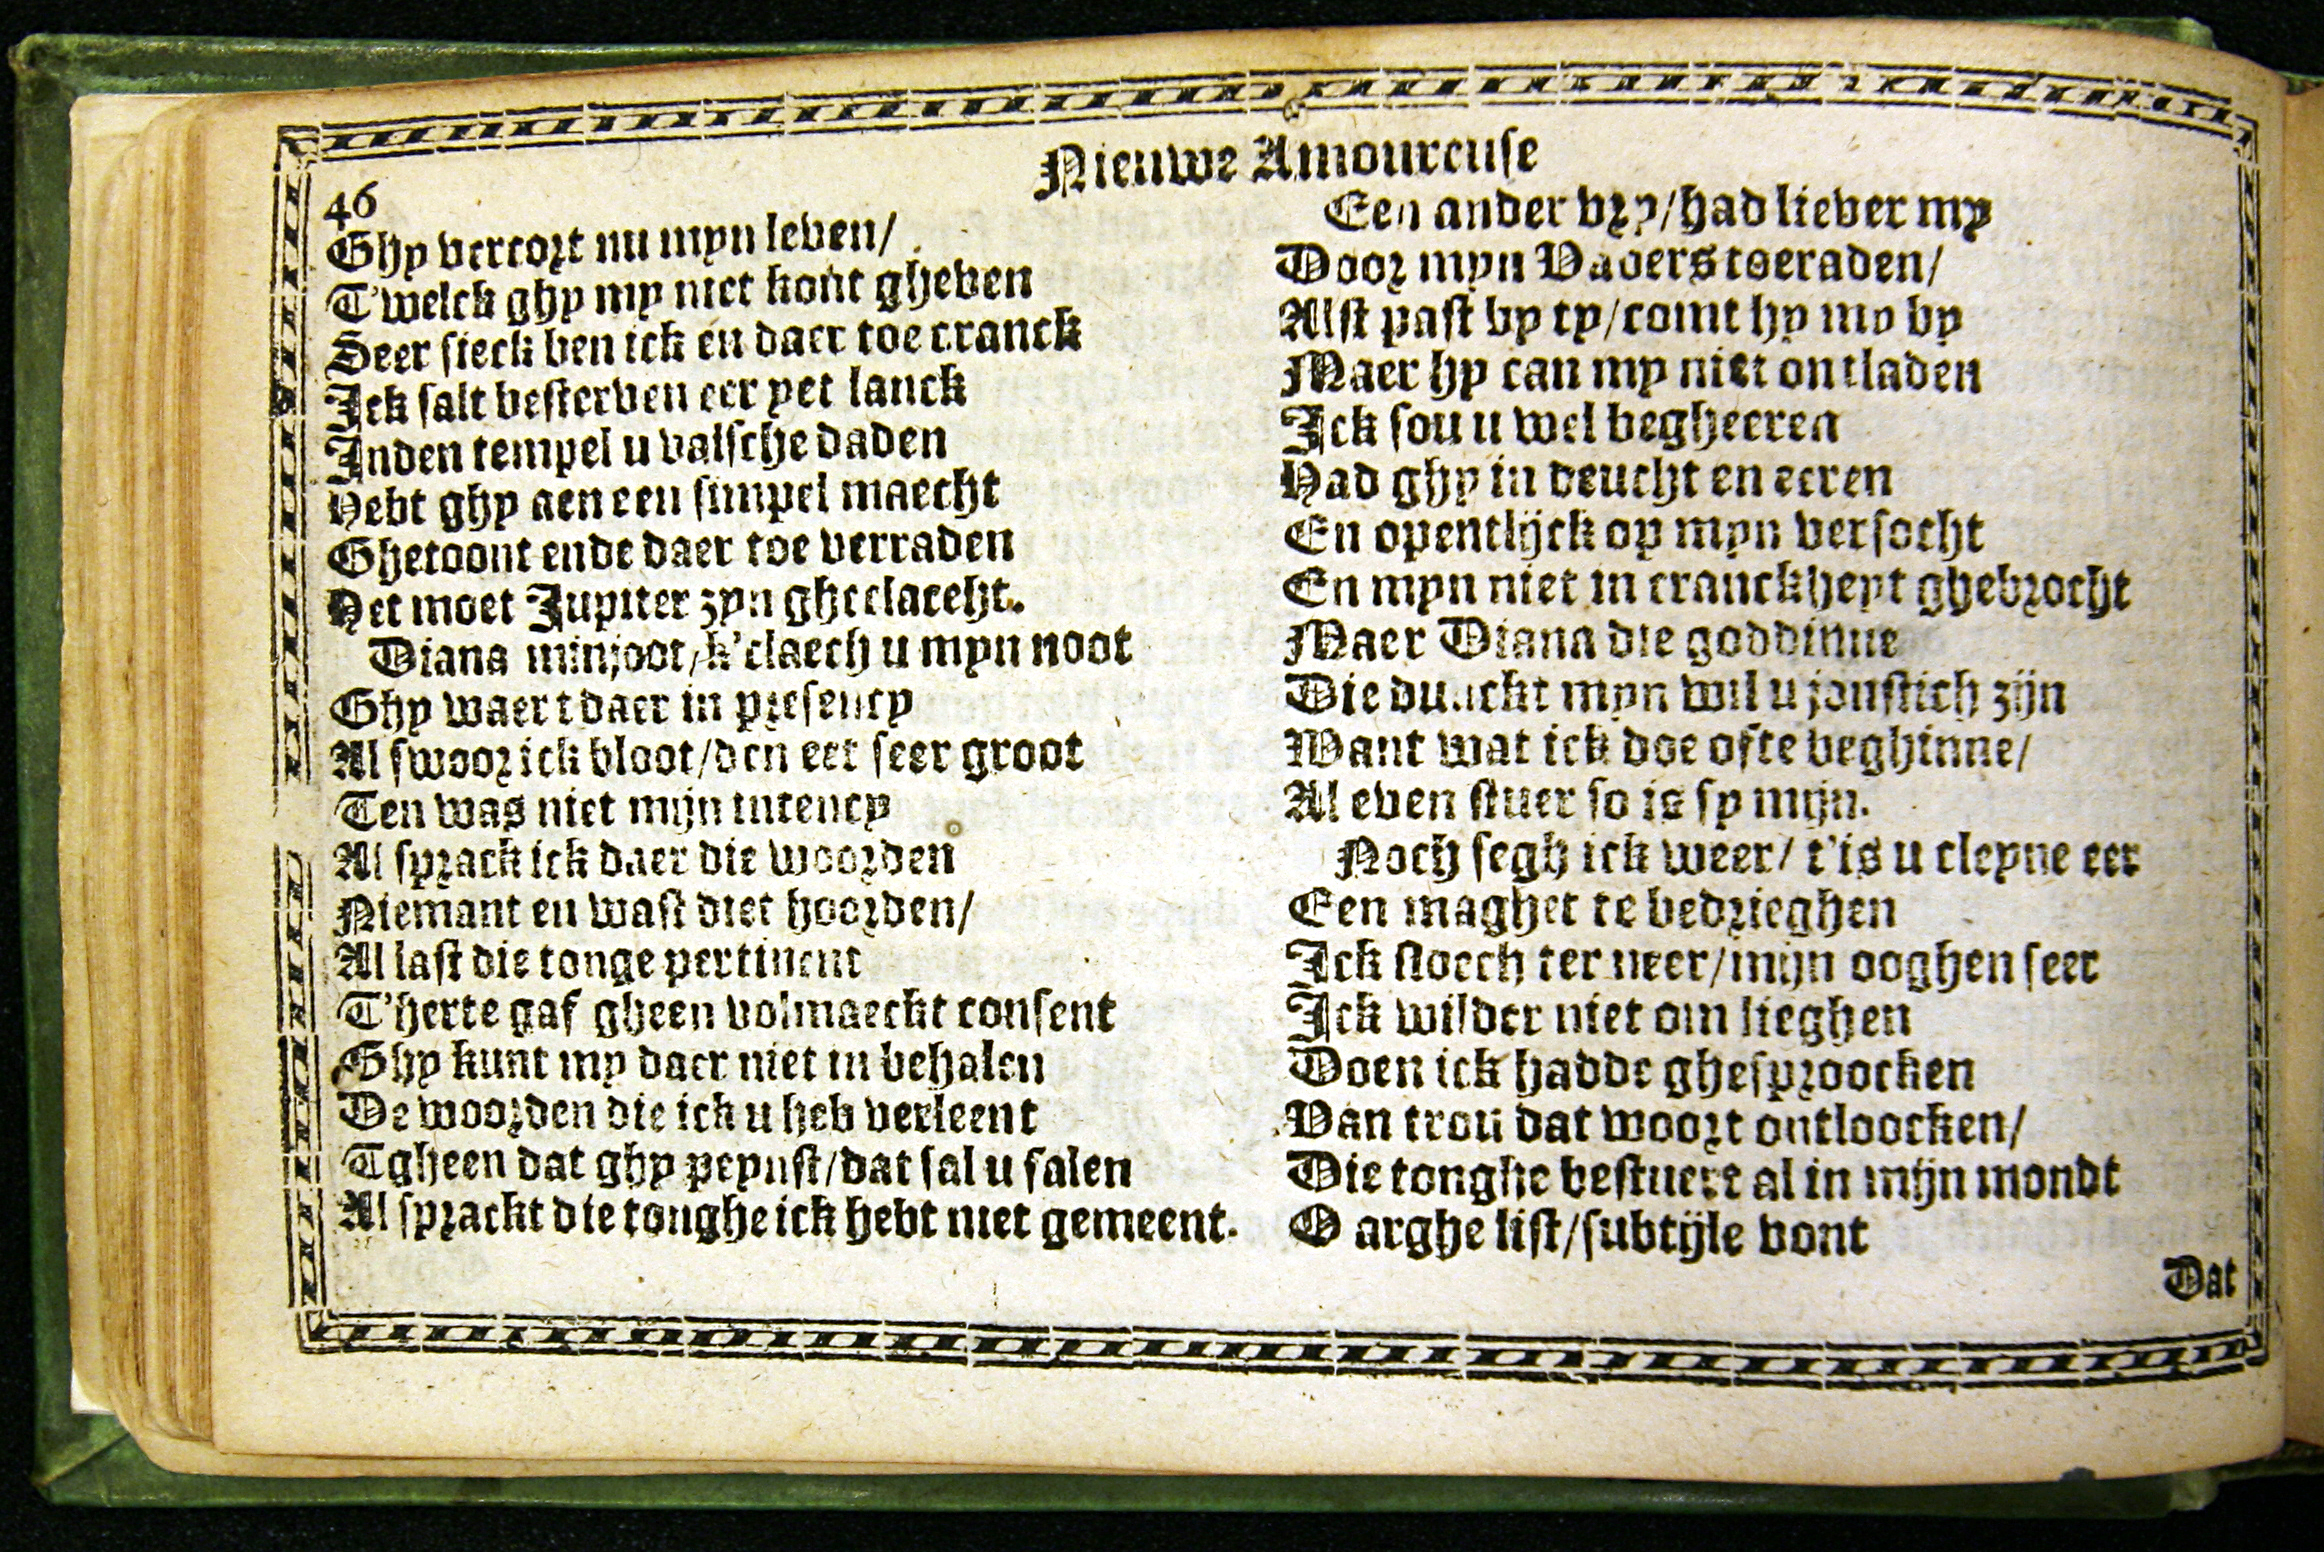 46
Nieuwe Amoureuse
Ghy vercort nu myn leven/
T'welck ghy my niet kont gheven
Seer sieck ben ick en daer toe cranck
Ick salt besterven eer yet lanck
Inden tempel u valsche daden
Hebt ghy aen een simpel maecht
Ghetoont ende daer toe verraden
Het moet Jupiter zyn gheclaeht.
Diana minjoot/k'claech u myn noot
Ghy waert daer in presency
Al swoor ick bloot/den eet seer groot
Ten was niet mijn intency
Al sprack ick daer die woorden
Niemant en wast diet hoorden/
Al last die tonge pertinent
T'herte gaf gheen volmaeckt consent
Ghy kunt my daer niet in behalen
De woorden die ick u heb verleent
Tgheen dat ghy peynst/dat sal u falen
Al sprackt die tonghe ick hebt niet gemeent.
Een ander vry/had liever my
Door myn Vaders toeraden/
Alst past by ty/comt hy my by
Maer hy can my niet ontladen
Ick sou u wel begheeren
Had ghy in deucht en eeren
En opentlijck op myn versocht
En myn niet in cranckheyt ghebrocht
Maer Diana die goddinne
Die dunckt myn wil u jonstich zijn
Want wat ick doe ofte beghinne/
Al even stuer so is sy mijn.
Noch segh ick weer/t'is u cleyne eer
Een maghet te bedrieghen
Ick sloech ter neer/mijn ooghen seer
Ick wilder niet om lieghen
Doen ick hadde ghesproocken
Van trou dat woort ontloocken/
Die tonghe bestuere al in mijn mondt
O arghe list/subtijle vont
Dat